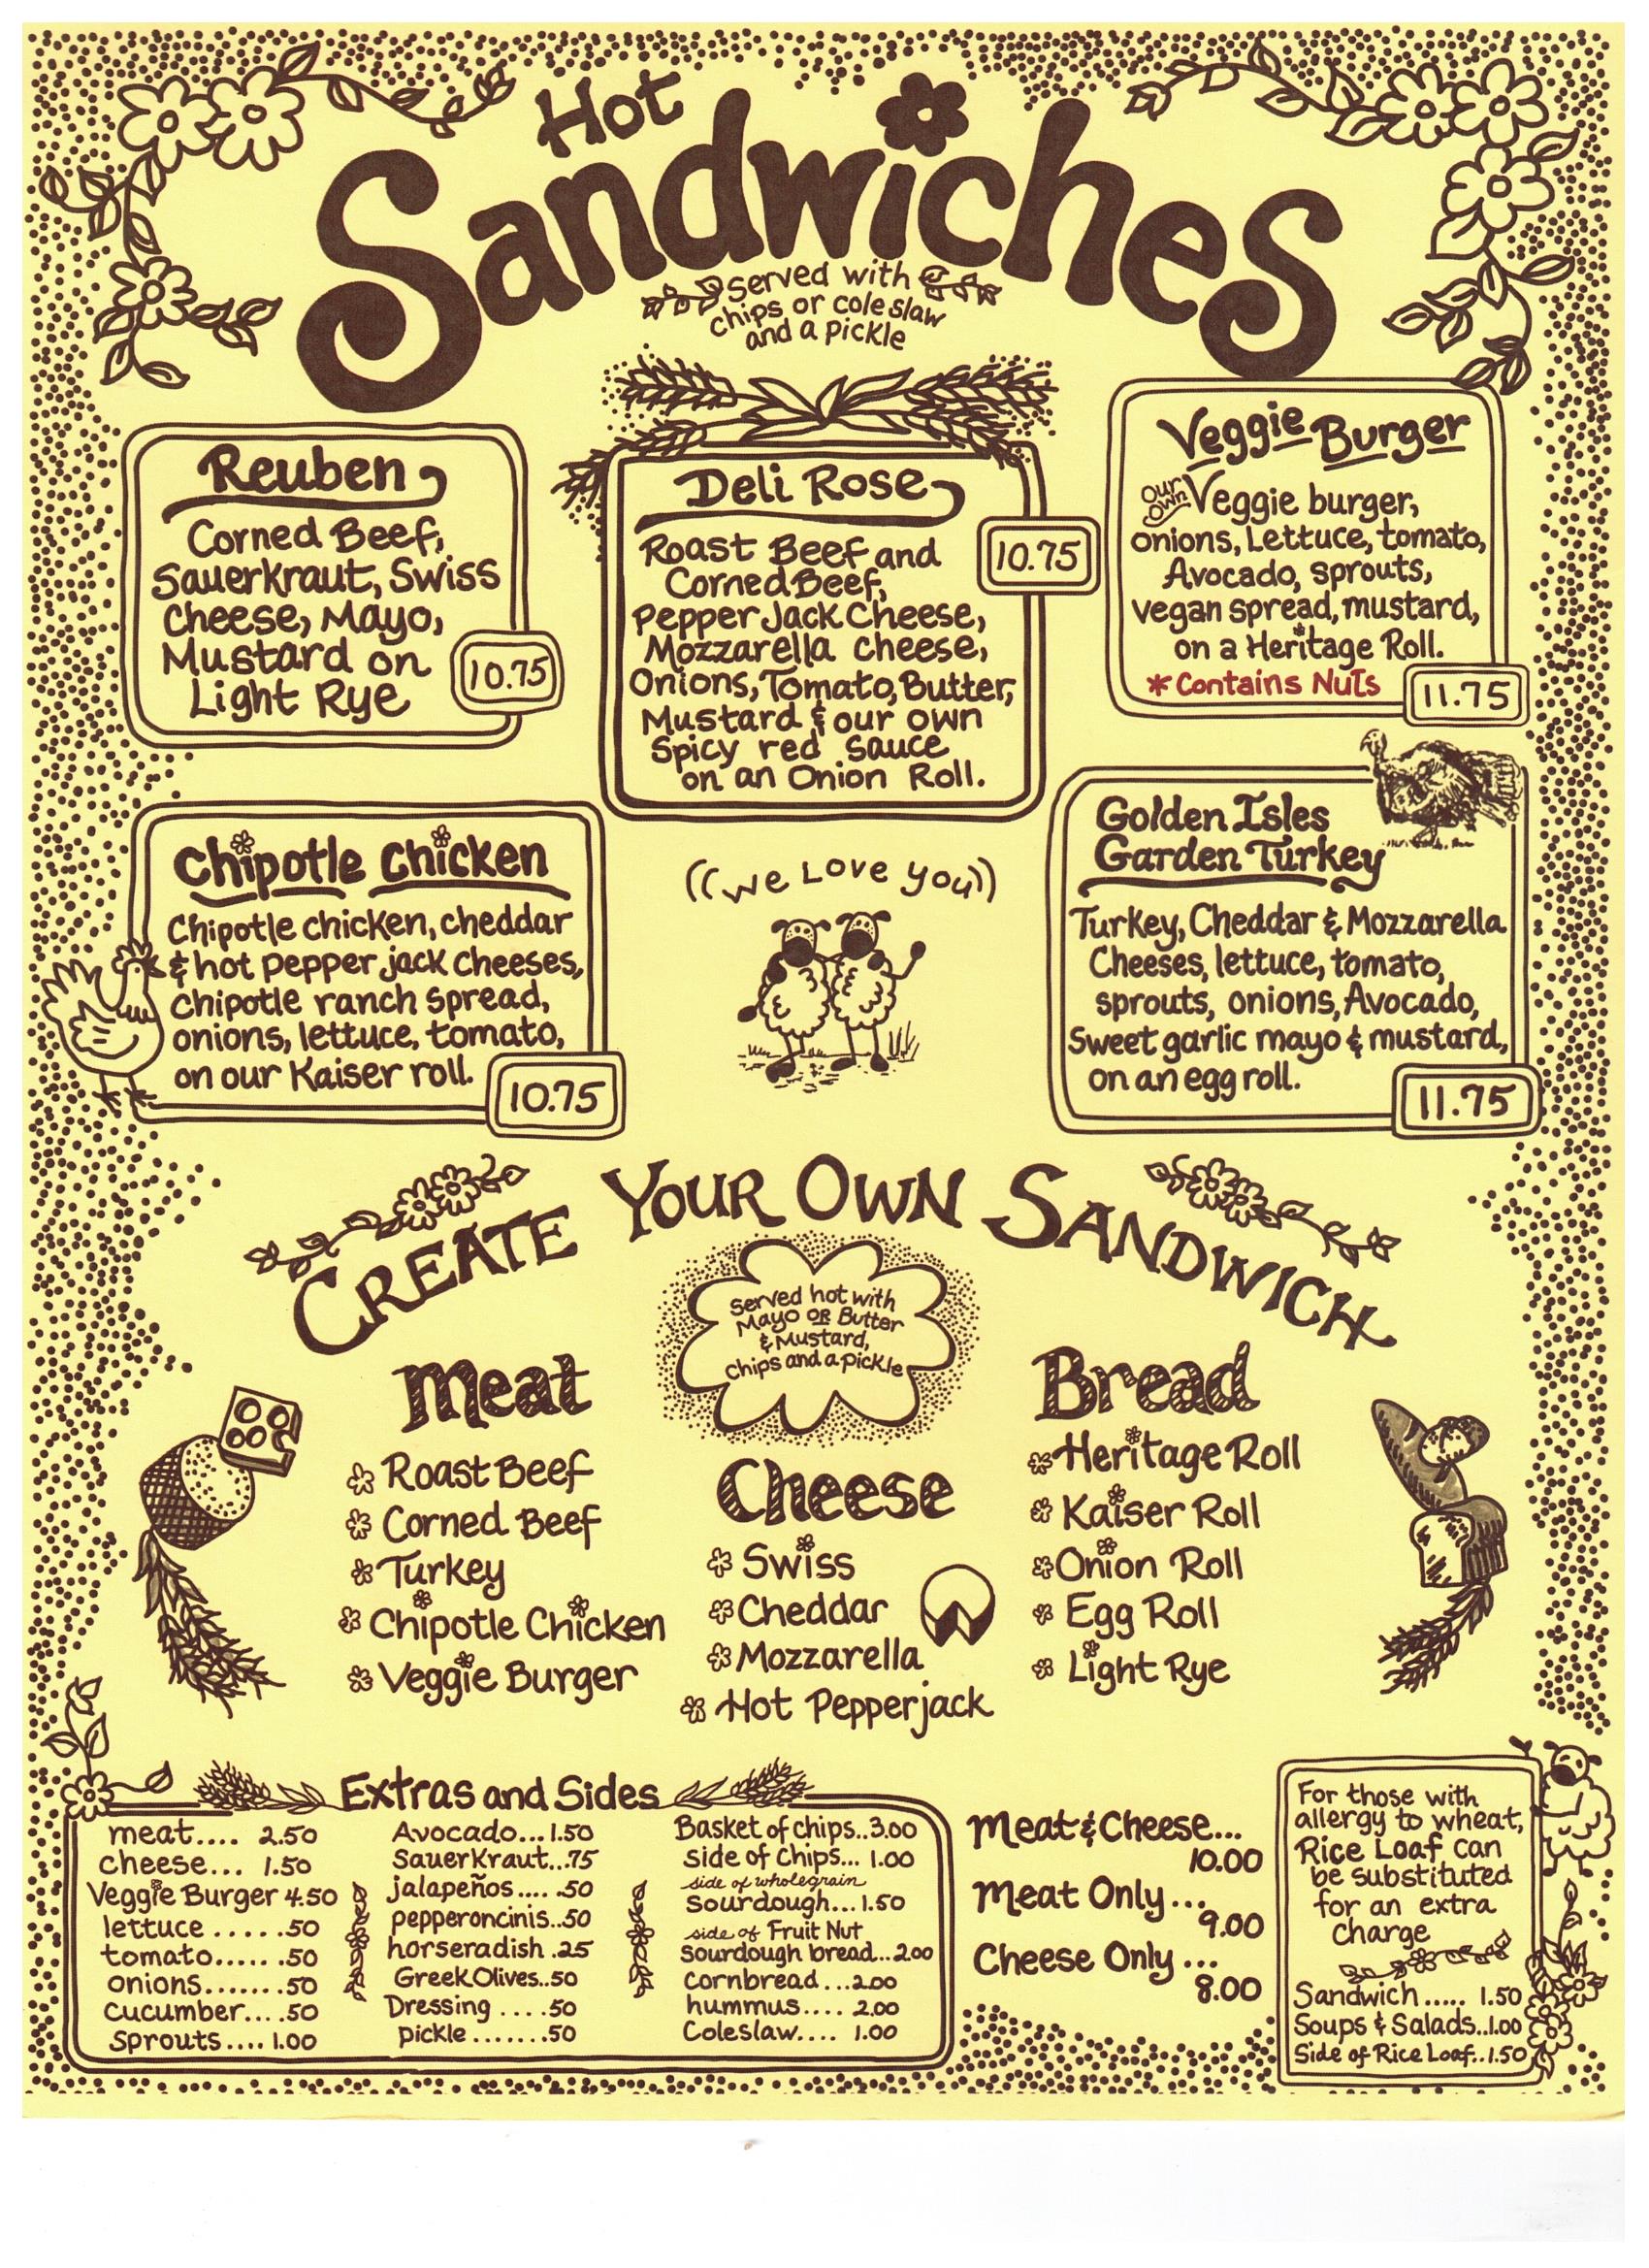 Hot
Sandwiches
served with
chips or coleslaw
and a pickle
Reuben
Corned Beef,
Sauerkraut, Swiss
Cheese, Mayo,
Mustard on
Light Rye
10.75
Deli Rose
Roast Beef and
Corned Beef,
Pepper Jack Cheese,
Mozzarella cheese,
Onions, Tomato, Butter,
Mustard & our own
Spicy red sauce
on an Onion Roll.
10.75
Veggie Burger
our own Veggie burger,
onions, Lettuce, tomato,
Avocado, sprouts,
vegan spread, mustard,
on a Heritage Roll.
* Contains Nuts
11.75
Chipotle Chicken
Chipotle chicken, cheddar
& hot pepper jack cheeses,
chipotle ranch spread,
onions, lettuce, tomato,
on our Kaiser roll.
10.75
((We Love you))
Golden Isles
Garden Turkey
Turkey, Cheddar & Mozzarella
Cheeses, lettuce, tomato,
sprouts, onions, Avocado,
Sweet garlic mayo & mustard,
on an egg roll.
11.75
CREATE YOUR OWN SANDWICH
served hot with
Mayo OR Butter
& Mustard,
chips and a pickle
Meat
Roast Beef
Corned Beef
Turkey
Chipotle Chicken
Veggie Burger
Cheese
Swiss
Cheddar
Mozzarella
Hot Pepperjack
Bread
Heritage Roll
Kaiser Roll
Onion Roll
Egg Roll
Light Rye
Extras and Sides
meat.... 2.50
cheese... 1.50
Veggie Burger 4.50
lettuce ..... .50
tomato..... .50
onions.......50
cucumber....50
Sprouts.... 1.00
Avocado...1.50
Sauerkraut...75
jalapeños.... .50
pepperoncinis..50
horseradish .25
Greek Olives..50
Dressing ....50
pickle.......50
Basket of chips..3.00
side of chips... 1.00
side of wholegrain
sourdough...1.50
side of Fruit Nut
sourdough bread...2.00
cornbread...2.00
hummus.... 2.00
Coleslaw.... 1.00
Meat & Cheese...
10.00
Meat Only...
9.00
Cheese Only...
8.00
For those with
allergy to wheat,
Rice Loaf can
be substituted
for an extra
Charge
Sandwich..... 1.50
Soups & Salads..1.00
Side of Rice Loaf..1.50